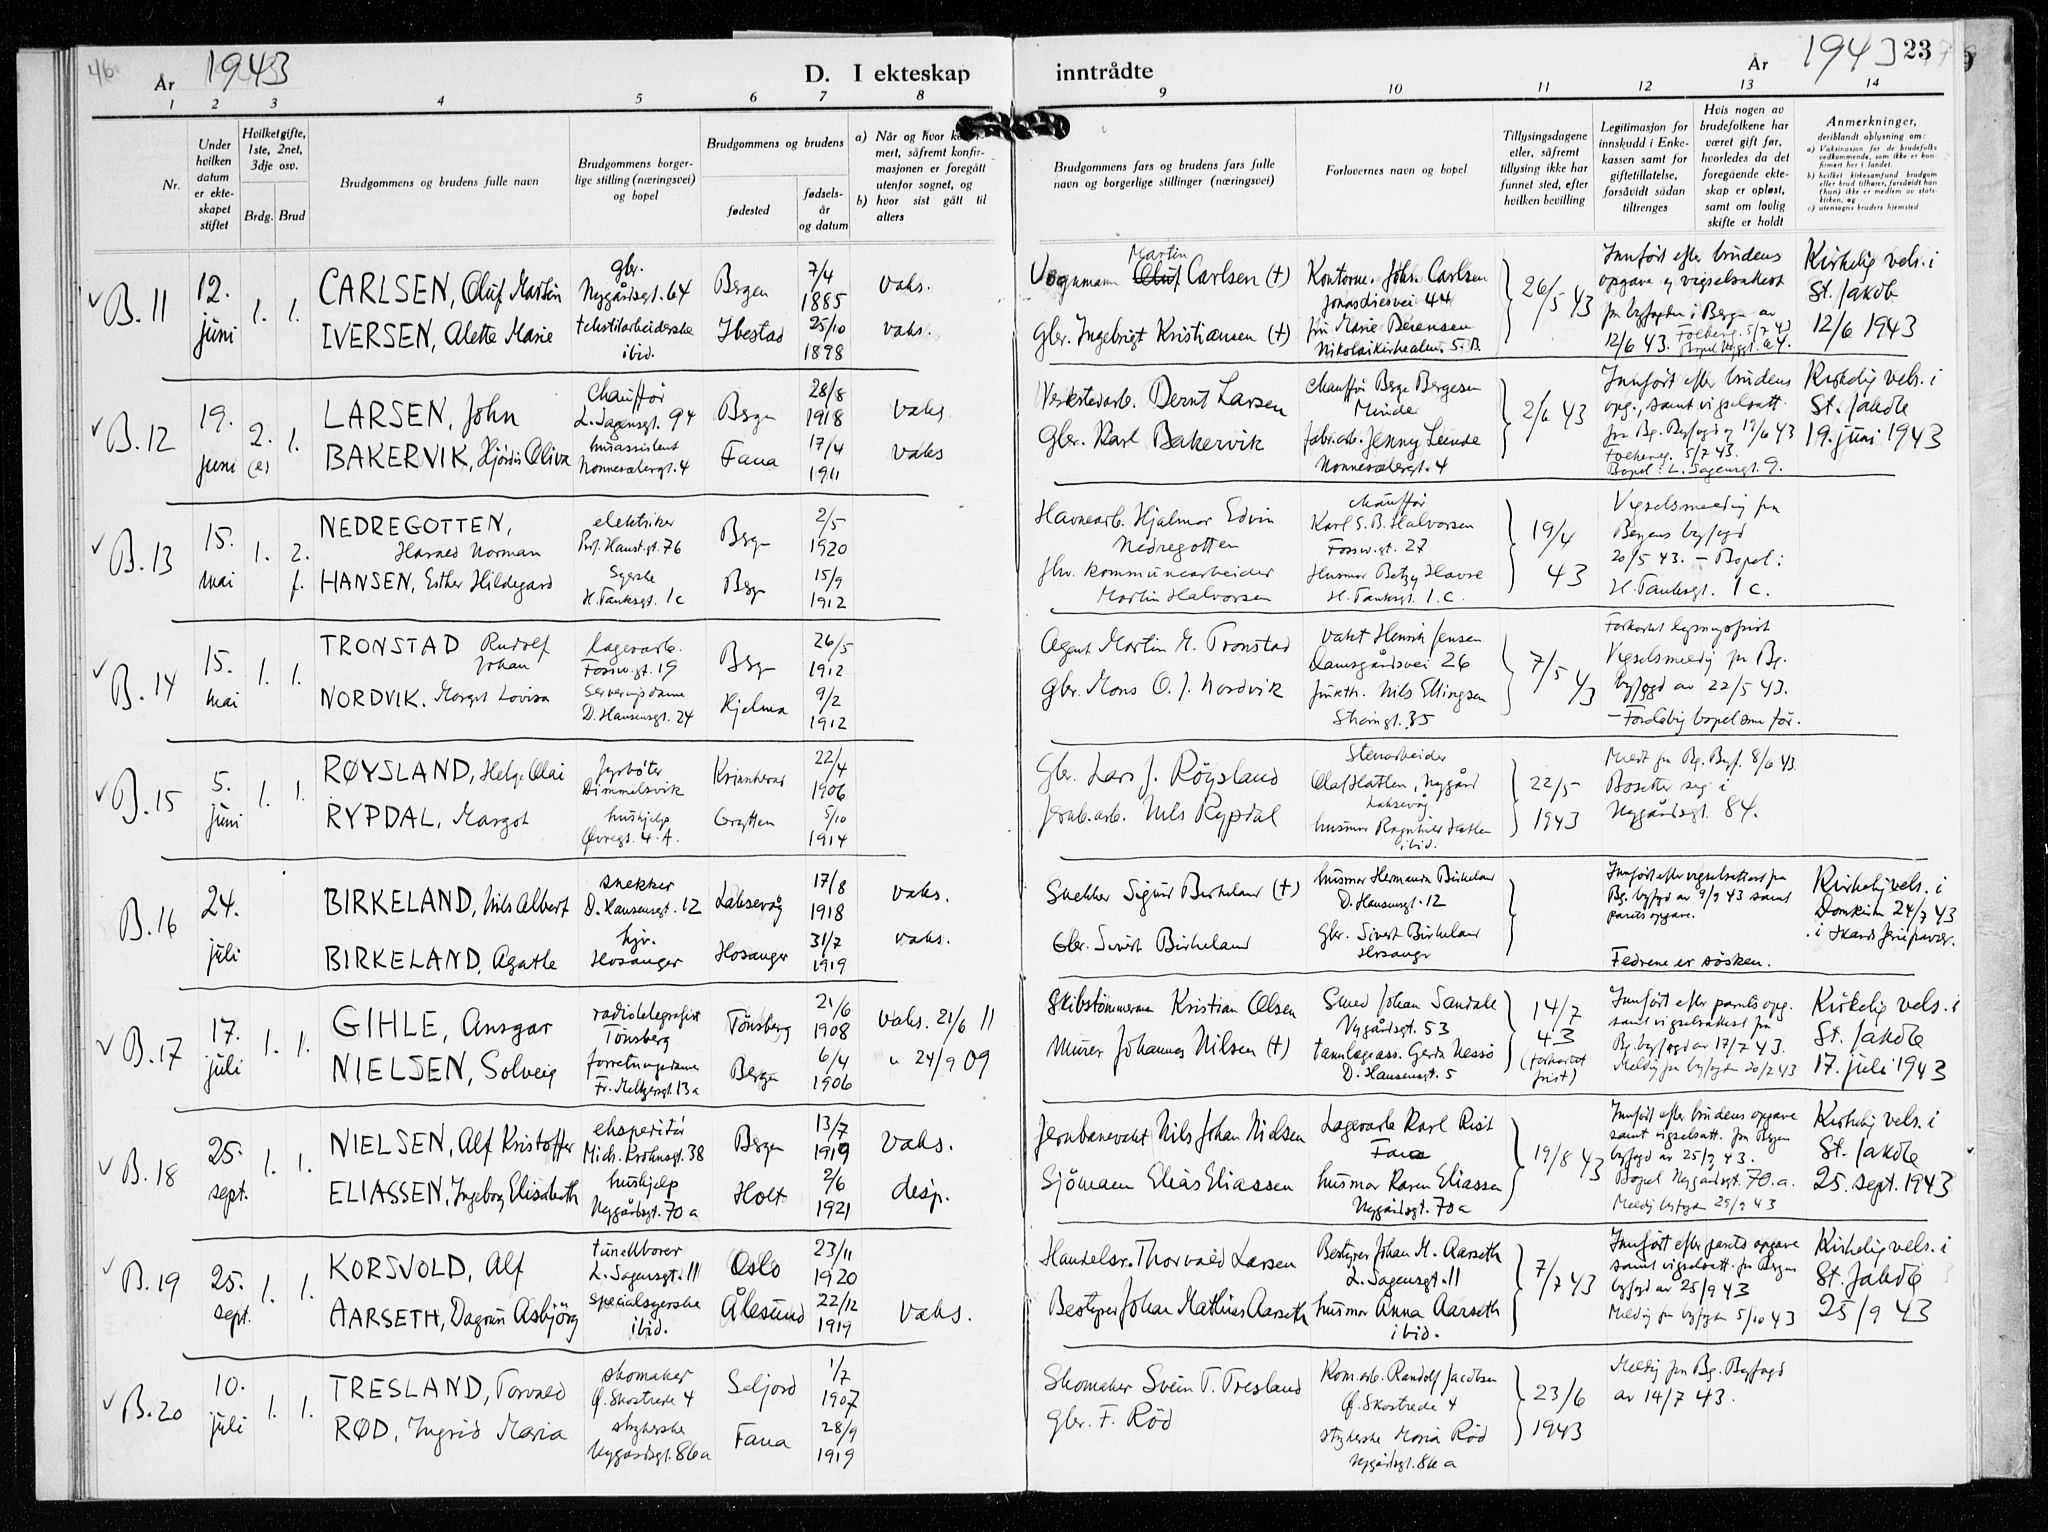 46
År 1943
D. I ekteskap
1 2 3 4 5 6 7 8
Nr.
Under hvilken datum er ekteskapet stiftet
Hvilketgifte, 1ste, 2net, 3dje osv.
Brdg. Brud
Brudgommens og brudens fulle navn
Brudgommens borgerlige stilling (næringsvei) og bopel
Brudgommens og brudens
fødested
fødselsår og datum
a) Når og hvor
mert, såfremt konfirmasjonen er foregått utenfor sognet, og
b) hvor sist gått til alters
B. 11 12. juni 1. 1.
CARLSEN, Oluf Martin gbr. Nygårdsgt. 64 Bergen 7/4 1885 vaks.
IVERSEN, Alette Marie tekstilarbeiderske ibid. Ibestad 25/10 1898 vaks.
B. 12 19. juni 2. (e) 1.
LARSEN, John Chauffør L. Sagensgt. 94 Bergen 28/8 1918 vaks.
BAKERVIK, Hjørdis Oliva husassistent Nonnesetergt. 4 Fana 17/4 1911 vaks
B. 13 15. mai 1. 2. f.
NEDREGOTTEN, Harald Norman elektriker Prof. Hanst.gt. 76 Bergen 2/5 1920
HANSEN, Esther Hildegard Syerske H. Tanksgt. 1c Bergen 15/9 1912
B. 14 15. mai 1. 1.
TRONSTAD Rudolf Johan lagerarb. Fossw.gt. 19 Bergen 26/5 1912
NORDVIK, Margot Lovisa Serveringsdame D. Hansensgt. 24 Hjelma 9/2 1912
B. 15 5. juni 1. 1.
RØYSLAND, Helge Olai fyrbøter Dimmelsvik Kvinnherad 22/4 1906
RYPDAL, Margot hushjelp Øvregt. 4. A. Grytten 5/10 1914
B. 16 24. juli
BIRKELAND, Nils Albert snekker D. Hansensgt. 12 Laksevåg 17/8 1918 vaks.
BIRKELAND, Agathe hjv. Hosanger Hosanger 31/7 1919 vaks.
B. 17 17. juli 1. 1.
GIHLE, Ansgar radiotelegrafist Tönsberg Tönsberg 21/6 1908 vaks. 21/6 11
NIELSEN, Solveig forretningsdame Fr. Meltzersgt. 13a Bergen 6/4 1906 " 24/9 09
B. 18 25. sept. 1. 1.
NIELSEN, Alf Kristoffer ekspeditör Mich. Krohnsgt. 38 Bergen 13/7 1919 vaks.
ELIASSEN, Ingeborg Elisabeth hushjelp Nygårdsgt. 70a Holt 2/6 1921 disp.
B. 19 25. sept. 1. 1.
KORSVOLD, Alf tunellborer L. Sagensgt. 11 Oslo 23/11 1920
AARSETH, Dagrun Asbjörg specialsyerske ibid. Ålesund 22/12 1919 Vaks.
B. 20 10. juli 1. 1.
TRESLAND, Torvald skomaker Ø. Skostrede 4 Seljord 1/7 1907
RØD, Ingrid Maria strykerske Nygårdsgt. 86a Fana 28/9 1919
inntrådte
År 1943 23
9 10 11 12 13 14
Brudgommens fars og brudens fars fulle navn og borgerlige stillinger (næringsvei)
Forlovernes navn og bopel
Tillysingsdagene eller, såfremt tillysing ikke har funnet sted, efter hvilken bevilling
Legitimasjon for innskudd i Enkekassen samt for giftetillatelse, forsåvidt sådan tiltrenges
Hvis nogen av brudefolkene har været gift før, hvorledes da det foregående ekteskap er opløst, samt om lovlig skifte er holdt
Anmerkninger, deriblandt oplysning om:
a) Vaksinasjon for de brudefolks vedkommende, som ikke er konfirmert her i landet.
b) hvilket kirkesamfund brudgom eller brud tilhører, forsåvidt han (hun) ikke er medlem av statskirken, og
c) utensogns bruders hjemsted
Martin
Vognmann Oluf Carlsen (+) Kontorm. John Carlsen Jonas Liesvei 44 26/5 43
Gbr. Ingebrigt Kristiansen (+) fru Marie Berensen Nikolaikirkealm. 5. B.
Innført efter brudens opgave og vigselsattest fra byfogden i Bergen av 12/6 43. Folkereg. 5/7 43 Bopel Nygt. 64.
Kirkelig vels. i St. Jakob 12/6 1943
Verkstedarb. Bernt Larsen Chauffør Berge Bergesen Minde 2/6 43
Gbr. Karl Bakervik fabr.arb. Jenny Lunde Nonnesetergt. 4
Innført efter brudens opg., samt vigselsatt. fra Bg. Byfogd 19/6 43 Folkereg. 5/7 43. Bopel: L. Sagensgt. 9.
Kirkelig vels. i St. Jakob 19. juni 1943
Havnearb. Hjalmar Edvin Nedregotten chauffør Karl S. B. Halvorsen Fossw.gt. 27 19/4 43
fhv. kommunearbeider Martin Halvorsen Husmor Betzy Havre H. Tanksgt. 1. c.
Vigselsmelding fra Bergens byfogd 20/5 43. – Bopel: H. Tanksgt. 1 c.
Agent Martin M. Tronstad vakt Henrik Jensen Damsgårdsvei 26 7/5 43
Gbr. Mons O. J. Nordvik funkth. Nils Ellingsen Strømgt. 35
Forkortet lysningsfrist Vigselsmelding fra Bg. byfogd av 22/5 43. – Foreløbig bopel som før.
Gbr. Lars J. Röysland Stenarbeider Olaf Hatlen, Nygård Laksevåg 22/5 1943
Jernb.arb. Nils Rypdal husmor Ragnhild Hatlen ibid.
Meldt fra Bg. Byf. 8/6 43. Bosetter seg i Nygårdsgt. 84.
Snekker Sigurd Birkeland (+) husmor Hermanda Birkeland D. Hansensgt. 12
Gbr. Sivert Birkeland Gbr. Sivert Birkeland Hosanger
Innført efter vigselsattest fra Bg. byfogd av 9/9 43 samt parets opgave. Fedrene er søsken.
Kirkelig vels. i Domkirken 24/7 43
Skibstömmerm Kristian Olsen Smed Johan Sandal Nygårdsgt. 53 14/7 43 (forkortet frist)
Murer Johannes Nilsen (+) tannlegeass. Gerda Nessö D. Hansensgt. 5
Innført efter parets opg. samt vigselsattest fra Bg. byfogd av 17/7 43. Melding fra byfogden 20/7 43
Kirkelig vels. i St. Jakob 17. juli 1943
Jernbanevakt Nils Johan Nielsen Lagerarb Karl Rist Fana 19/8 43
Sjömann Elias Eliassen husmor Karen Eliassen Nygårdsgt. 70a
Innført efter brudens opgave samt vigselsatt. fra Bergen byfogd av 25/9 43. Bopel Nygårdsgt. 70. a. Melding byfogden 29/9 43
Kirkelig vels. i St. Jakob 25. sept. 1943
Handelsr. Thorvald Larsen Bestyrer Johan M. Aarseth L. Sagensgt. 11 7/7 43
Bestyrer Johan Mathias Aarseth husmor Anna Aarseth ibid.
Innført efter parets opgave samt vigselsatt. fra Bergens byfogd av 25/9 43 Melding fra byfogden 5/10 43
Kirkelig vels. i St. Jakob 25/9 43
Skomaker Svein T. Tresland Kom.arb. Randolf Jacobsen Ø. Skostrede 4 23/6 1943
Gbr. F. Röd strykerske Maria Röd Nygårdsgt. 86 a
Melding fra Bg. Byfogd av 14/7 43.